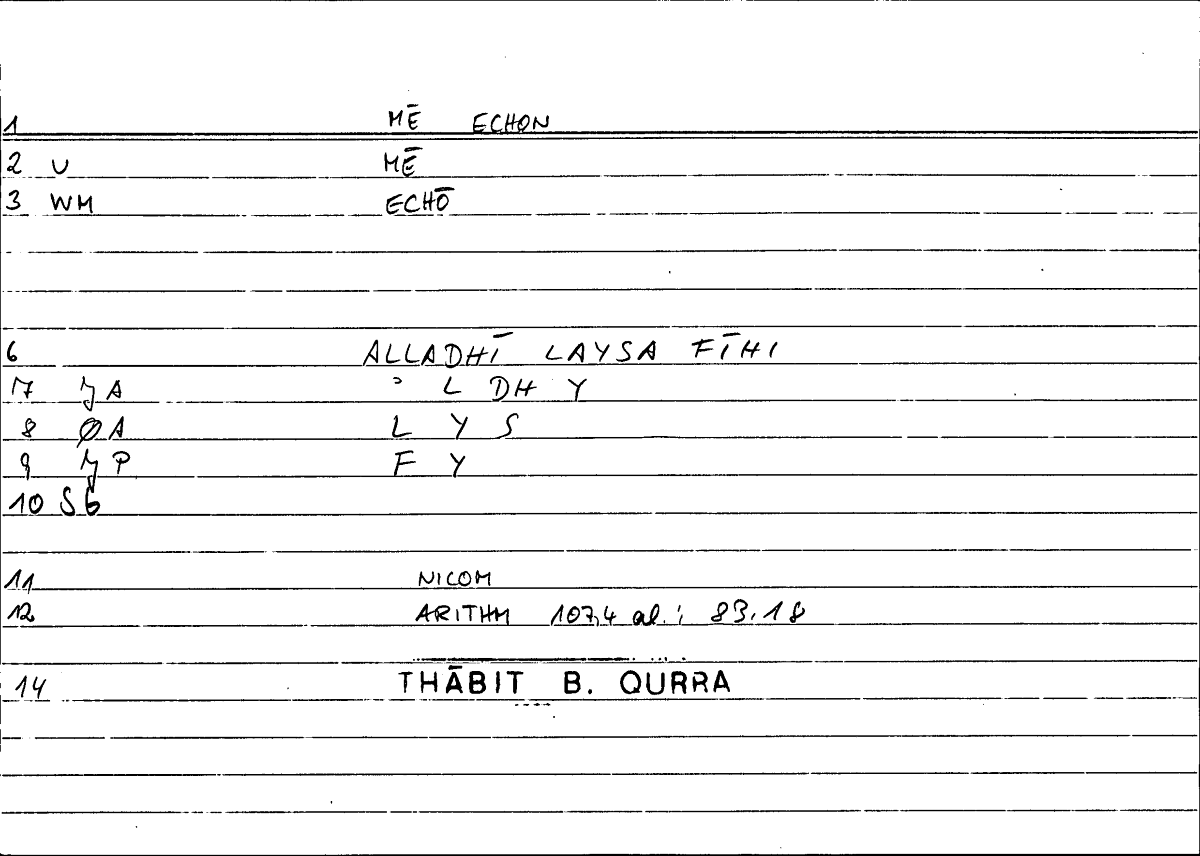 1 MĒ ECHON
2 U MĒ
3 WM ECHŌ
6 ALLADHĪ LAYSA FĪHI
7 A ʾ L DH Y
8 ØA L Y S
9 P F Y
10 S6
11 NICOM
12 ARITHM 107,4 al.; 83,18
14 THĀBIT B. QURRA